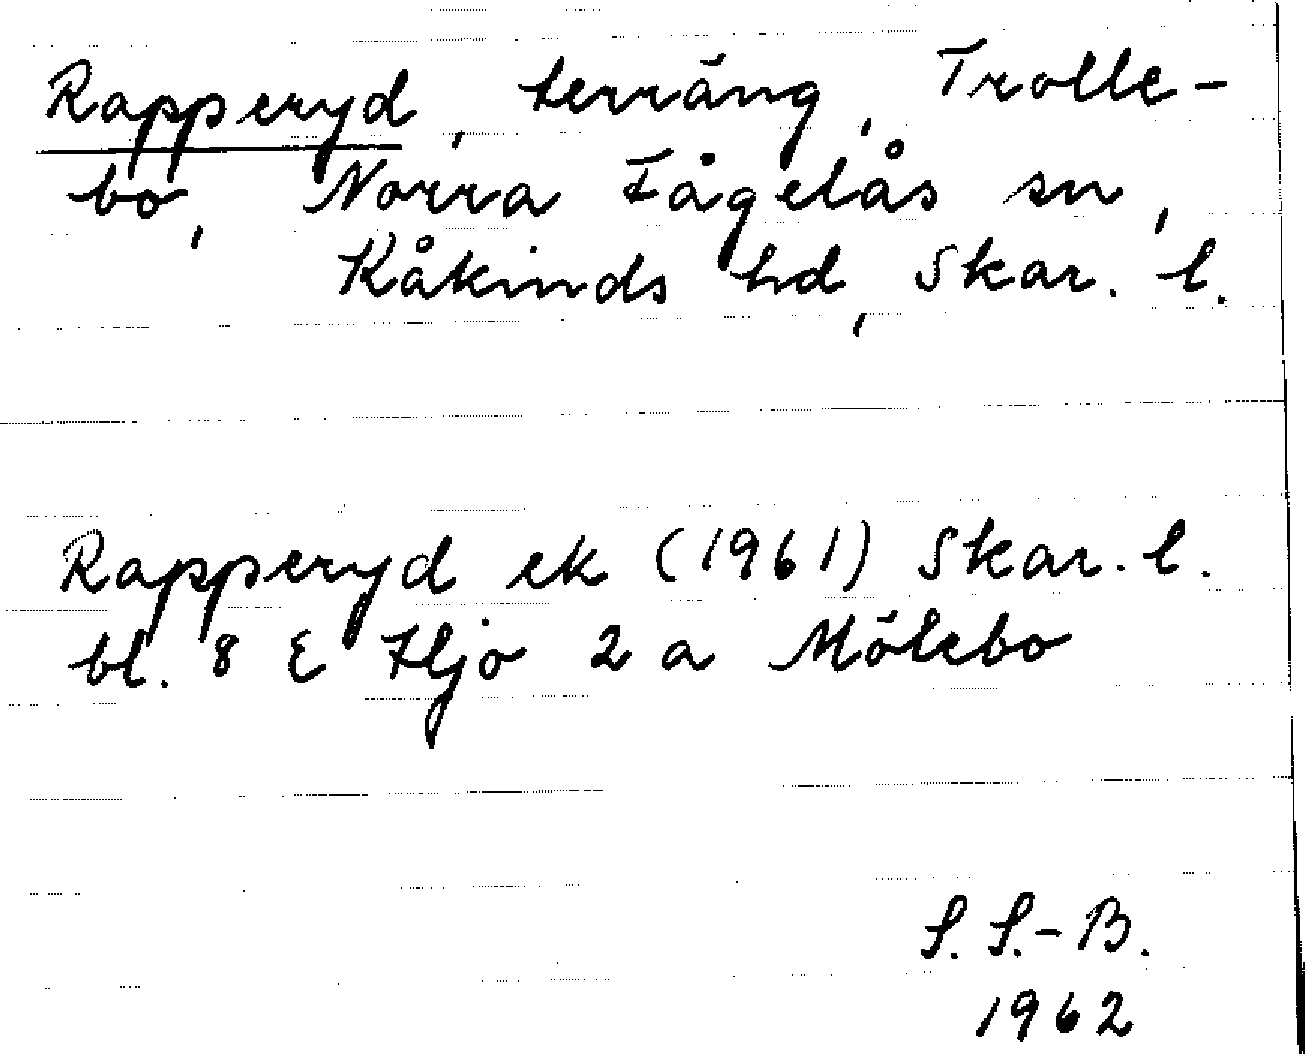 Rapperyd, terräng, Trolle-
bo, Norra Fågelås sn,
Kåkinds hd, Skar. l.
Rapperyd ek (1961) Skar. l.
bl. 8 E Hjo 2 a Mölebo
S. S.-B.
1962